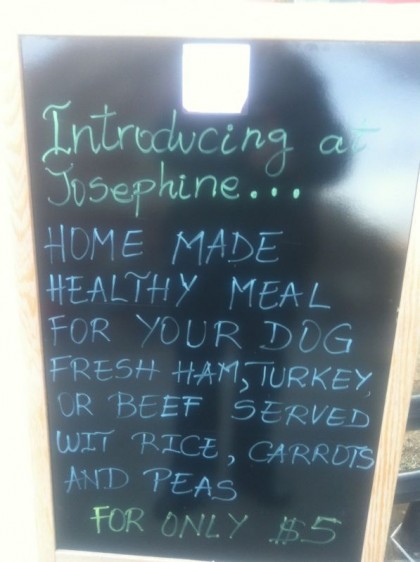 Introducing at
Josephine...
HOME MADE
HEALTHY MEAL
FOR YOUR DOG
FRESH HAM, TURKEY,
OR BEEF SERVED
WIT RICE, CARROTS
AND PEAS
FOR ONLY $5